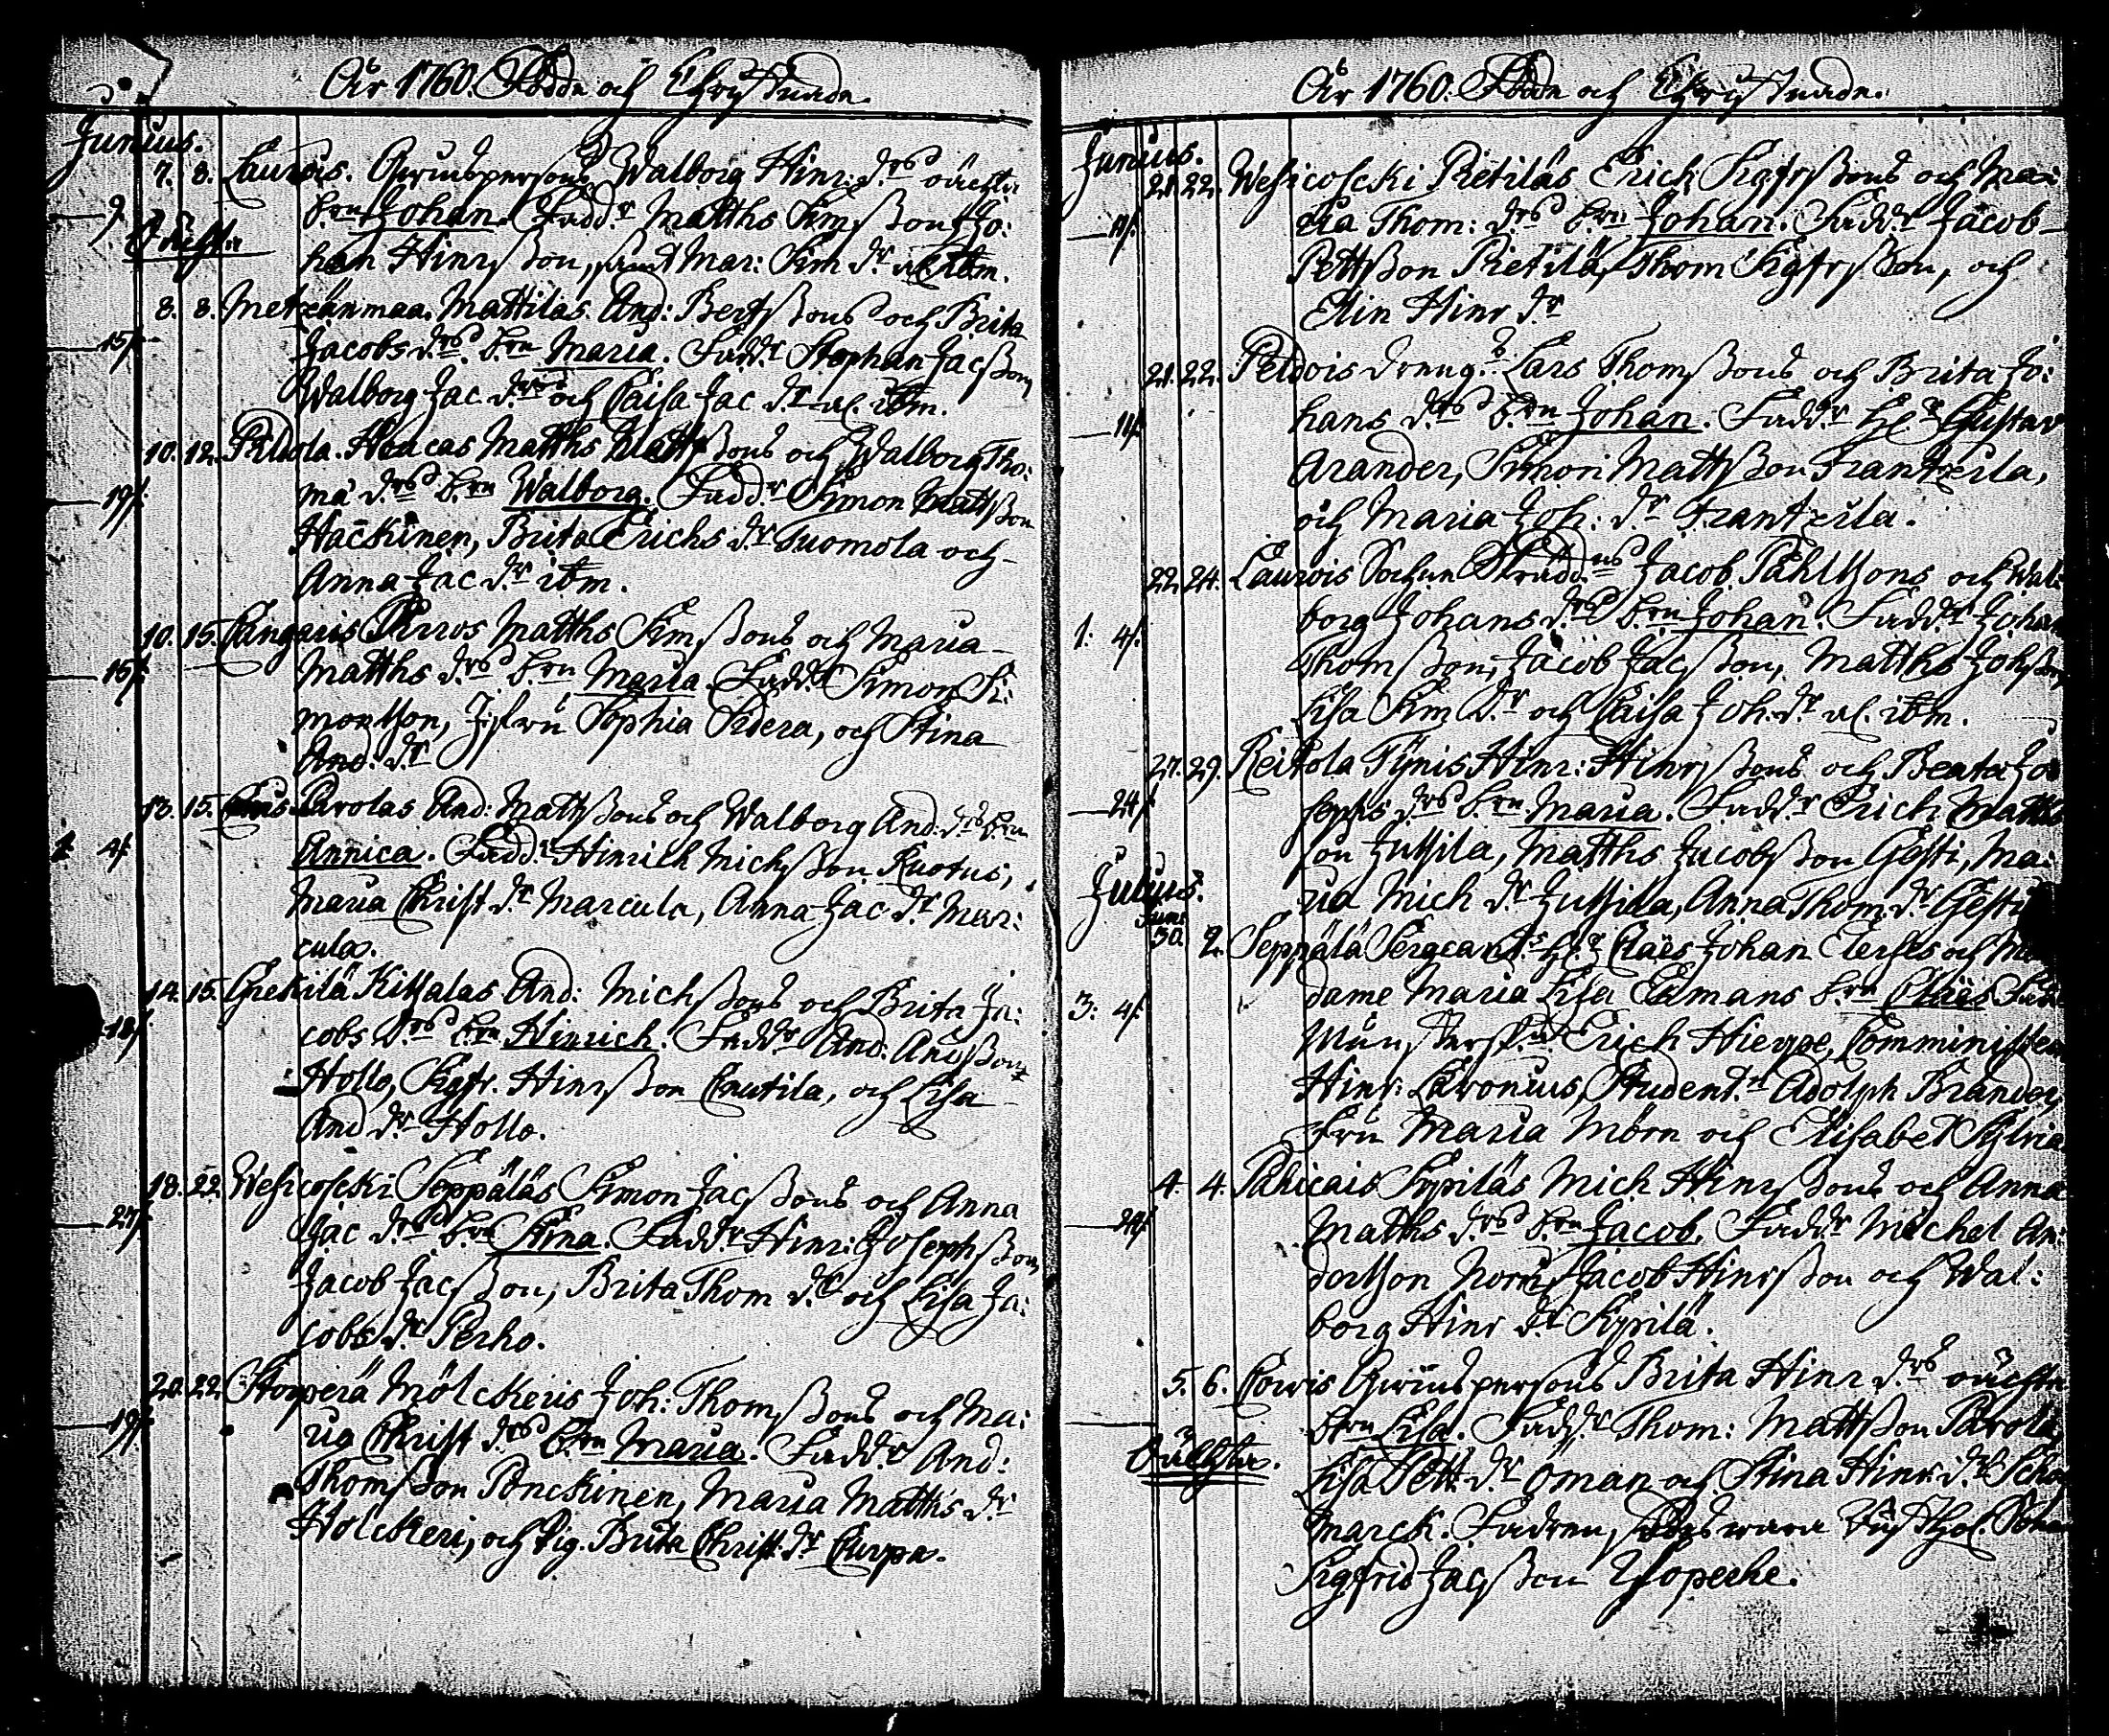 År 1760. Födde och Christnade.
Junius.
7. 8. Laurois. Qwinspersons Walborg Hinr: drs oächta
9. b:rn Johan. Fadd:r Matths Sim ßon, Jo:
Oächta
han Hinrsßon, samt Mar: Sim d:r al. ibm.
8. 8. Metzänmaa. Mattilas And: Bertsßons och Brita
15/. Jacobs d:rs b:rn Maria. Fadd:r Stephan Jacsßon,
Walborg Jac. d:r och Caisa Jac d:r al. ibm.
10. 12. Peldola. Heacas Matths Mattsßons och Walborg Tho:
19/. mæ d:rs b:rn Walborg. Fadd:r Simon Mattsßon
Häckinen, Brita Erichs d:r Tuomola och
Anna Jac d:r ibm.
10. 15. Cangaris Pirros Matths Simsßons och Maria
15/. Matths d:rs b:rn Maria. Fadd:r Simon Si:
monsson, Jgfru Sophia Sidera, och Stina
And: d:r
13. 15. Parolas And: Mattsßons och Walborg And: d:rs b:rn
4/. Annica. Fadd:r Hinrich Michsßon Ruotus,
Maria Christ d:r Marcula, Anna Jac d:r Mar:
cula.
14. 15. Grekilä Kittalas And: Michsßons och Brita Ja:
18/. cobs d:rs b:rn Hinrich. Fadd:r And: Andsßon
Hollo, Sigfr. Hinrsßon Cnutila, och Lisa
And d:r Hollo.
18. 22. Wesicoscki Seppäläs Simon Jacsßons och Anna
27/. Jac d:rs b:rn Stina. Fadd:r Hinr: Josephsßon,
Jacob Jacsßon, Brita Thom d:r och Lisa Ja:
cobs d:r Perho.
20. 22. Storperä Mölckeris Joh: Thomsßons och Ma:
19/. ria Christ d:rs b:rn Maria. Fadd:r And:
Thomsßon Pänckinen, Maria Matths d:r
Holckeri, och Pig. Brita Christ: d:r Curpa.
År 1760. Födde och Christnade.
Junius.
21. 22. Wesicoscki Pietiläs Erich Sigfrsßons och Ma:
11/. ria Thom: d:rs b:rn Johan. Fadd:r Jacob
Pettsßon Pietilä, Thom Sigfrsßon, och
Elin Hinr d:r
21. 22. Peldois dreng:s Lars Thomsßons och Brita Jo:
11/. hans d:rs b:rn Johan. Fadd:r H:r Gustav
Arander, Simon Mattsßon Frantzila,
och Maria Joh: d:r Frantzila.
22. 24. Laurois Sochne Skrädd:ns Jacob Påhlssons och Wal:
1: 4/. borg Johans d:rs b:rn Johan. Fadd:r Johan
Thomsßon, Jacob Jacsßon, Matths Johsßon,
Lisa Sim d:r och Caisa Joh: d:r al. ibm.
27. 29. Reikola Tÿnis Hinr: Hinrsßons och Beata Jo
24/. sephs d:rs b:rn Maria. Fadd:r Erich Matts
son Jussila, Matths Jacobsßon Gesti, Ma:
Julius.
ria Mich d:r Jussila, Anna Thom: d:r Gesti
Juni 30. 2. Seppälä Sergeant:s H:r Claës Johan Aerses och Ma
3: 4/. dame Maria Lisa Ekmans b:rn Claës. Fadd
Münsterskr:n Erich Hierpe, Comministern
Hinr: Cavonius, Student:n Adolph Brander,
Fru Maria Mörn och Elisabet Sylvia
4. 4. Pahicais Sypiläs Mich Hinrsßons och Anna
24/. Matths d:rs b:rn Jacob. Fadd:r Michel An:
dersson Norus, Jacob Hinrsßon och Wal:
borg Hinr d:r Sypilä.
5. 6. Cowis Qwinspersons Brita Hinr d:rs oächta
b:rn Lisa. Fadd:r Thom: Mattsßon Parola,
Oächta.
Lisa Pett: d:r Öman och Stina Hinr: d:r
marck. Fadren,
Sigfrid Jacsßon Yloperhe.